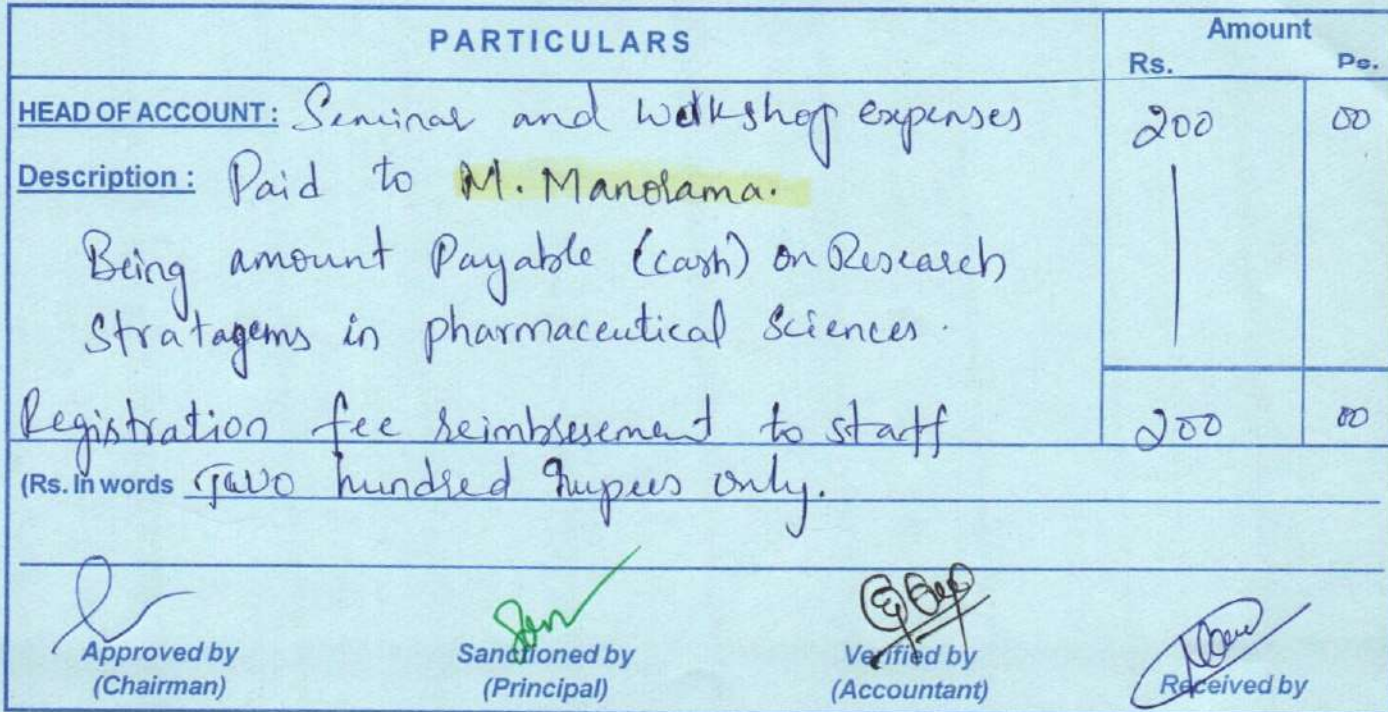 PARTICULARS Amount
Rs. Ps.
HEAD OF ACCOUNT: Seminar and Workshop expenses 200 00
Description: Paid to M. Manorama.
Being amount Payable (cash) on Research
Stratagems in pharmaceutical Sciences.
Registration fee reimbsesement to staff 200 00
(Rs. In words Two hundred rupees only.
Approved by Sanctioned by Verified by Received by
(Chairman) (Principal) (Accountant)